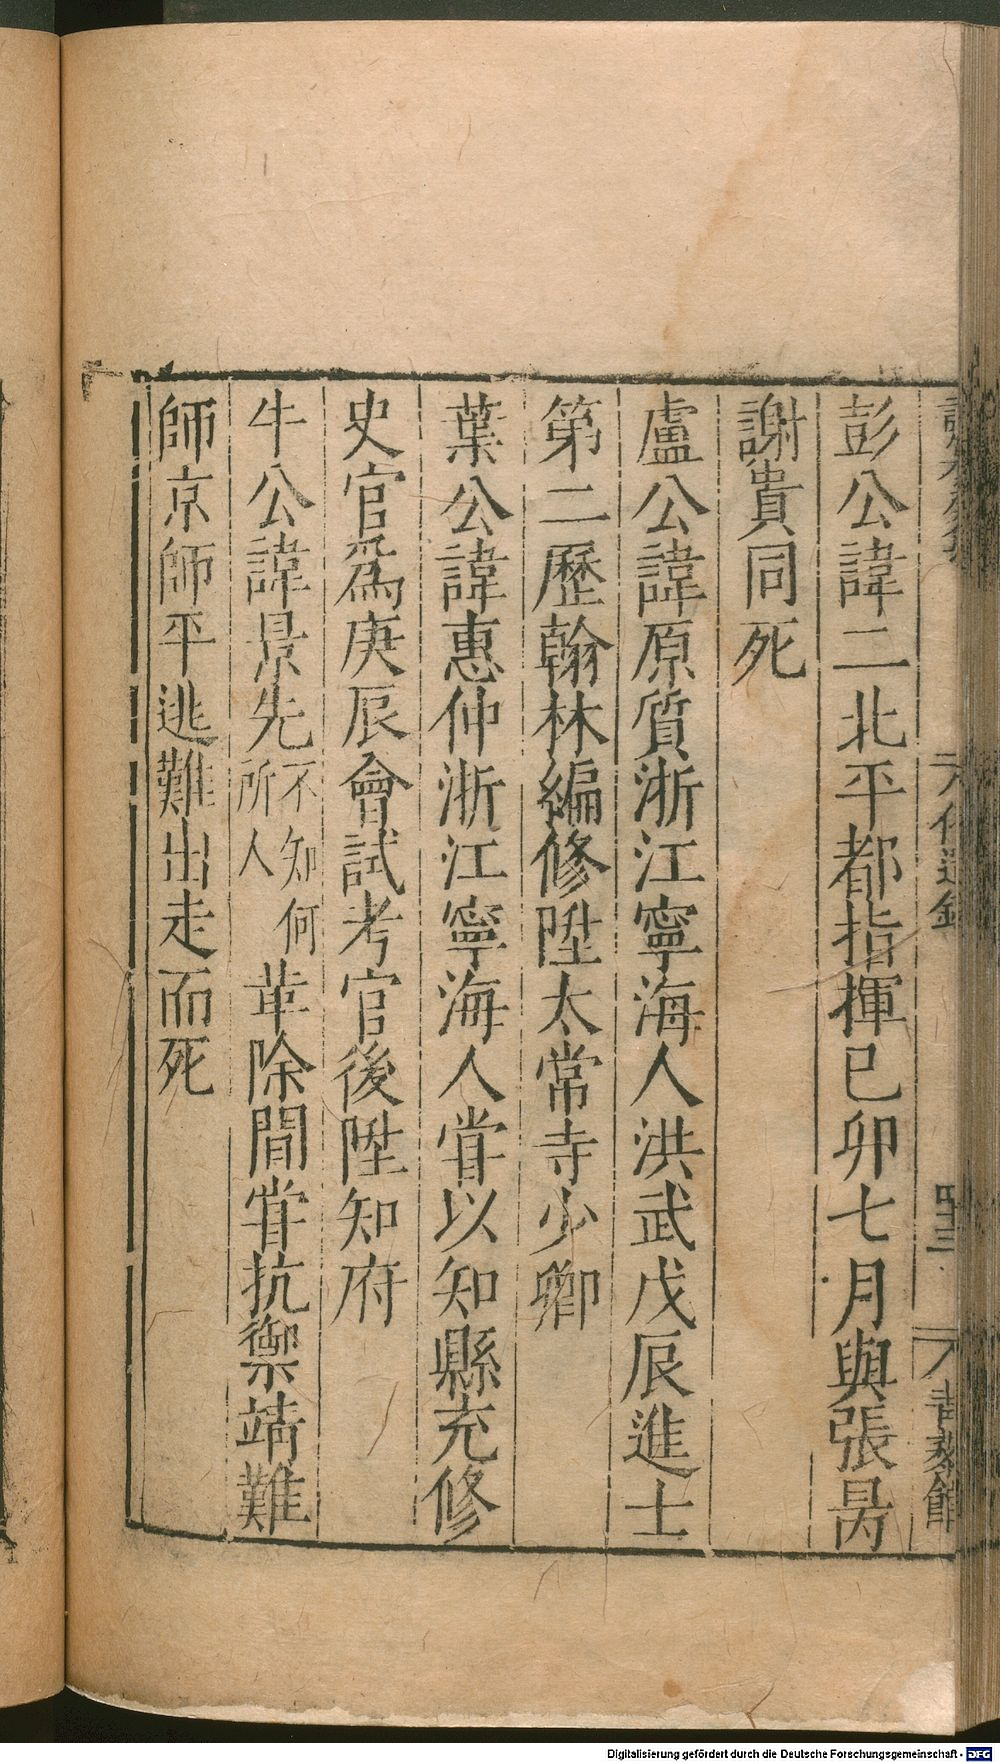 彭公諱二北平都指揮己卯七月與張昺
謝貴同死
盧公諱原質浙江寧海人洪武戊辰進士
第二歷翰林編修陞太常寺少卿
葉公諱惠仲浙江寧海人甞以知縣充修
史官爲庚辰會試考官後陞知府
牛公諱景先不知何所人革除間甞抗禦靖難
師京師平逃難出走而死
Digitalisierung gefördert durch die Deutsche Forschungsgemeinschaft - DFG